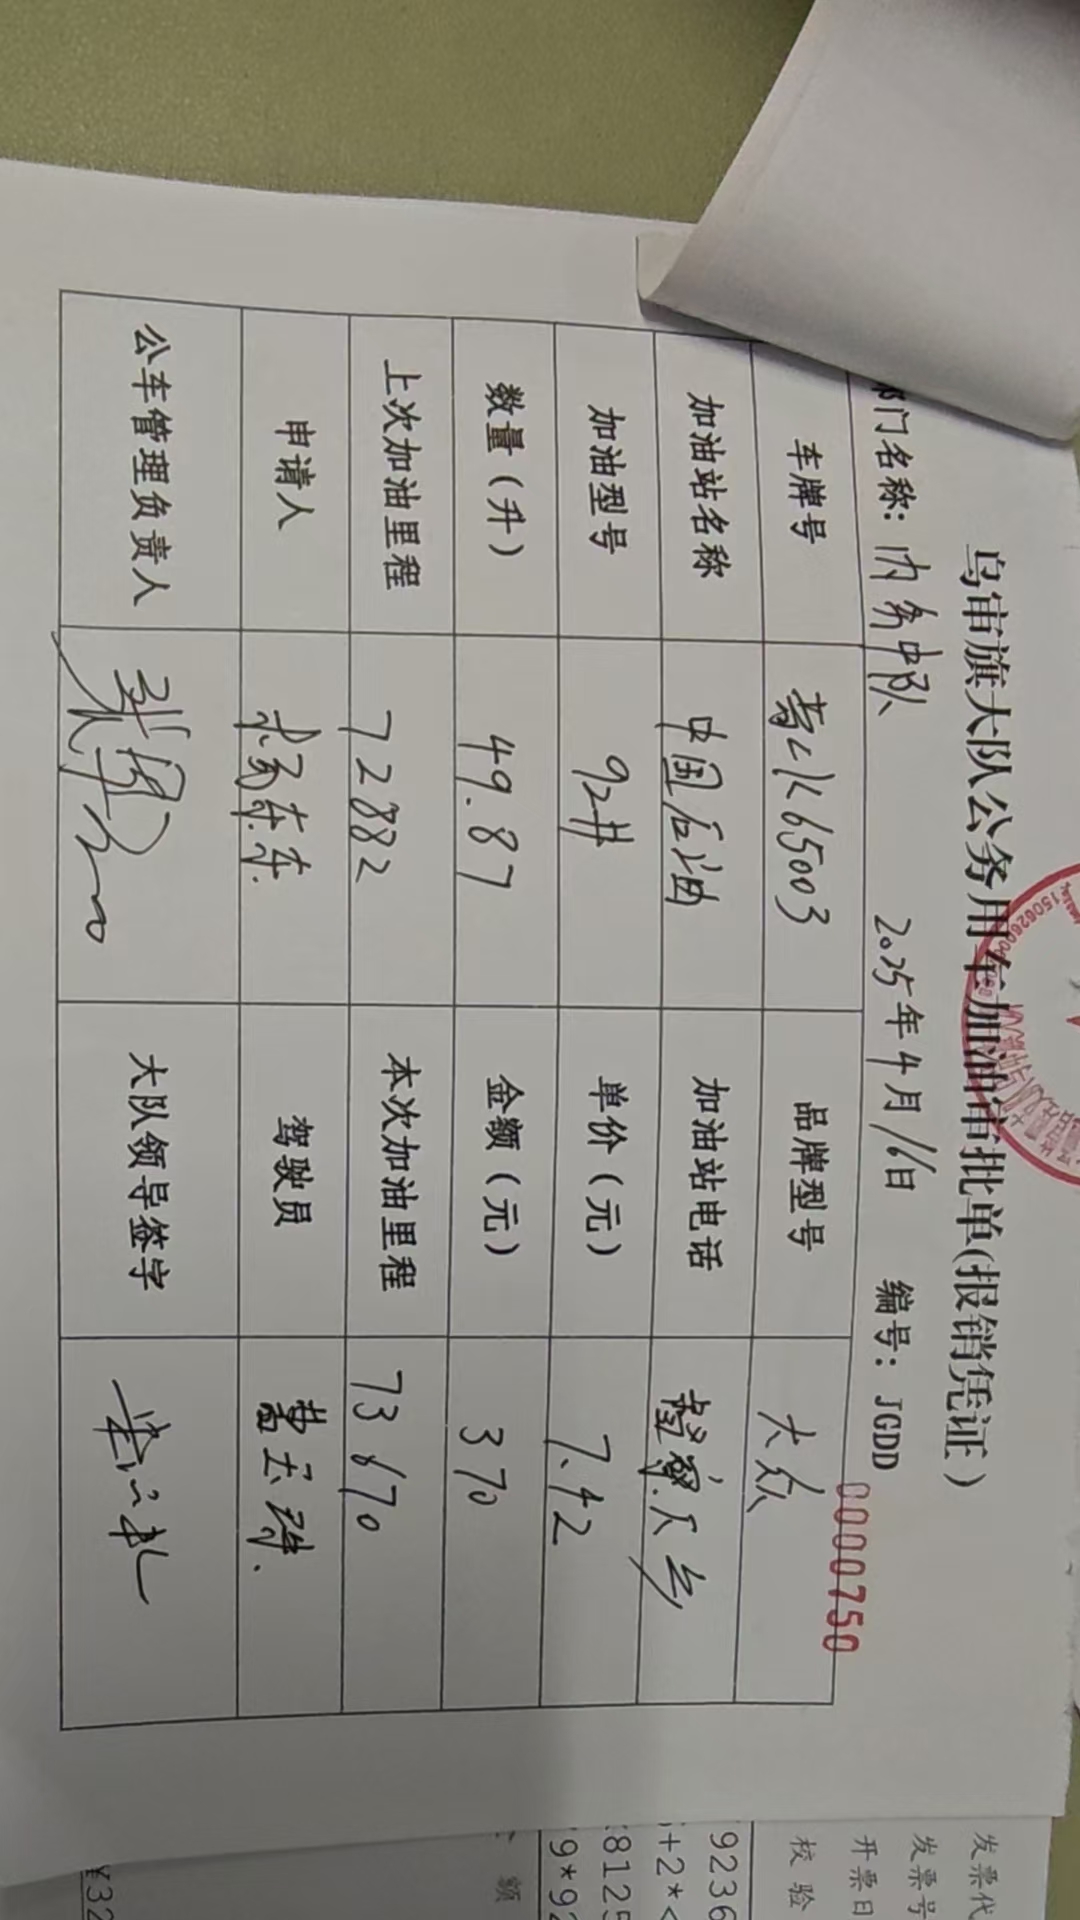 乌审旗大队公务用车加油审批单(报销凭证)
部门名称: 内务中队 2025年4月16日 编号: JGDD
0000750
车牌号 蒙K65003 品牌型号 大众
加油站名称 中国石油 加油站电话
加油型号 92# 单价(元) 7.42
数量(升) 49.87 金额(元) 370
上次加油里程 72882 本次加油里程 73670
申请人 驾驶员
公车管理负责人 大队领导签字
发票代
发票号
开票日
校验
9236
+2*<
8125
9*92
额
¥32